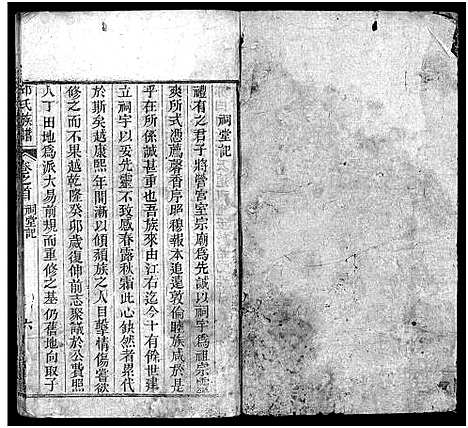 祠堂記
禮有之君子將營宮室宗廟爲先誠以祠宇爲祖宗靈
爽所式憑薦馨香序昭穆報本追遠敦倫睦族咸於是
乎在所係誠甚重也吾族來由江右迄今十有餘世建
立祠宇以妥先靈不致感春露秋霜此心缺然者累代
於斯矣越康熙年間漸以傾頹族之人目擊情傷嘗欲
修之而不果越乾隆癸卯歲復伸前志聚議於公費照
人丁田地爲派大易前規而重修之基仍舊地向取子
氏族譜
卷之首 祠堂記
六